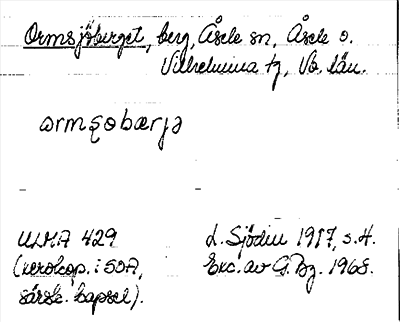 Ormsjöberget, berg, Åsele sn, Åsele o.
Vilhelmina tg, Vb. län.
ɷrmʂobærjə
ULMA 429
(xerokop. i SOA,
särsk. kapsel).
L. Sjödin 1917, s. 4.
Exc. av G. Bg. 1968.